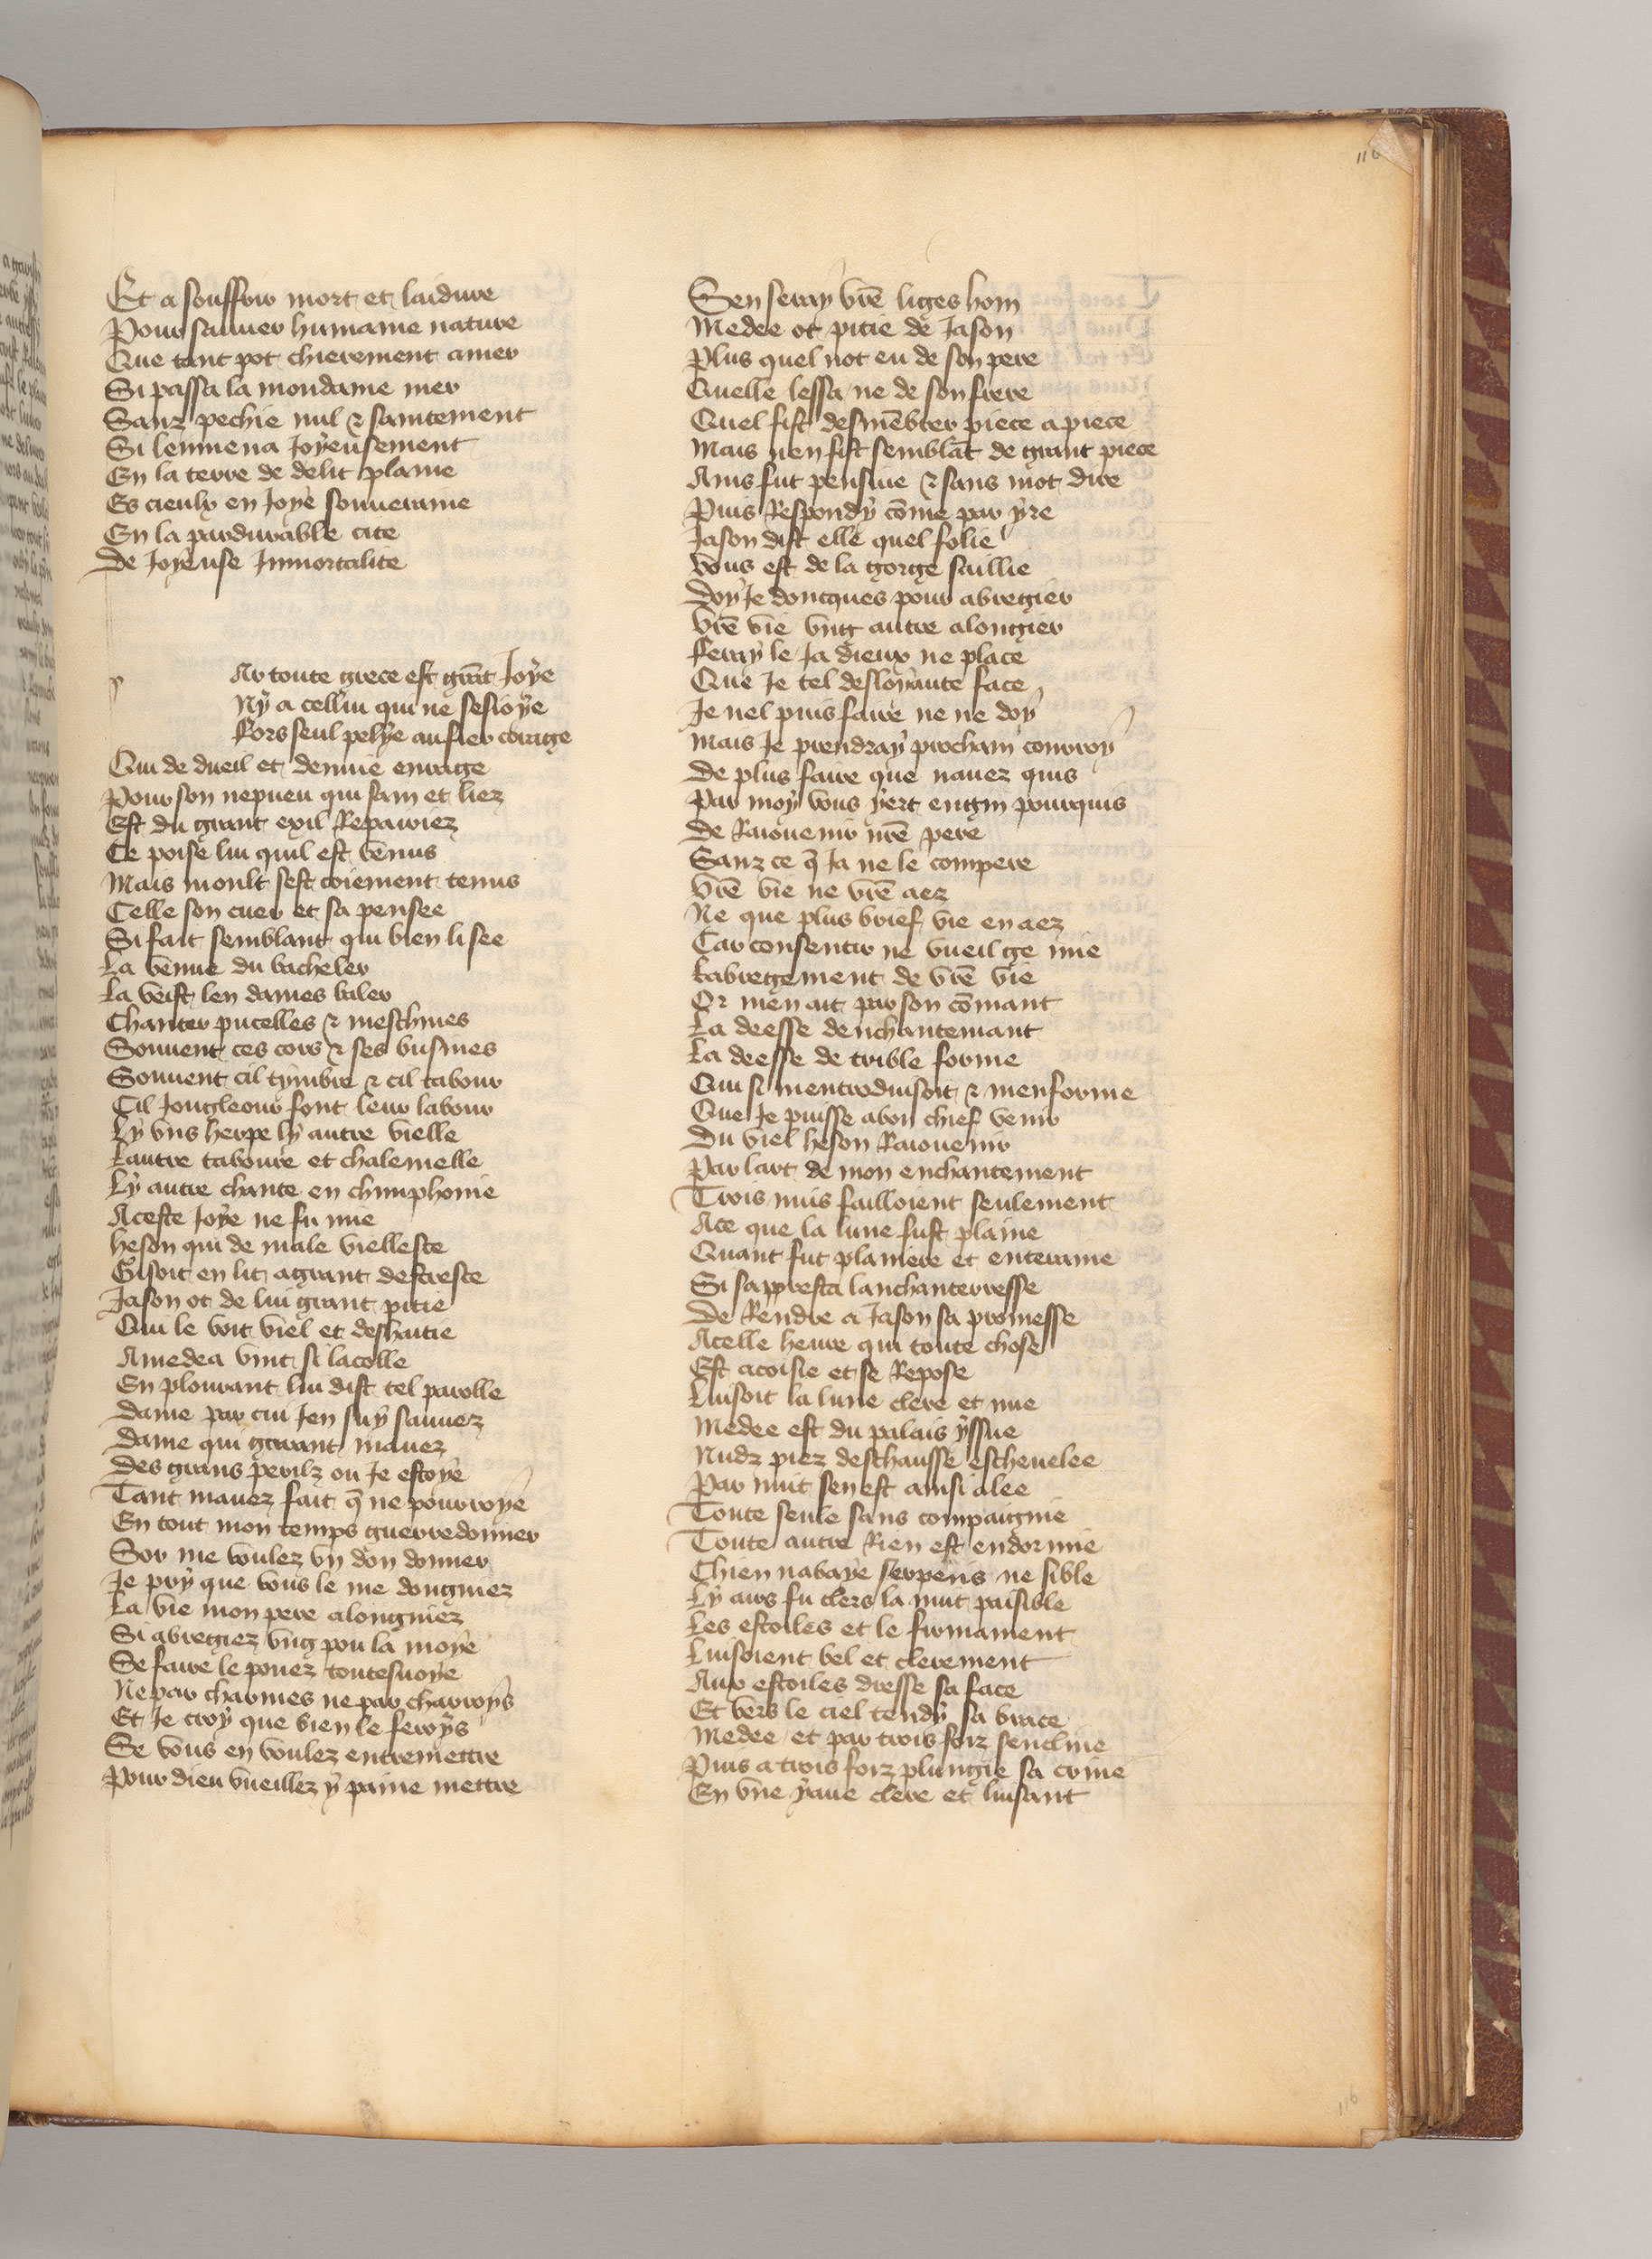 116
Et a souffrir mort et laidure
Pour sauuer humaine nature
Que tant pot chierement amer
Si passa la mondaine mer
Sanz pechie nul & saintement
Si lenmena Joyeusement
En la terre de delit plaine
Es cieulx en Joye souueraine
En la pardurable cite
De Joyeuse Inmortalite
p
Ar toute grece est grāt Joye
Ny a cellui qui ne sesioye
Fors seul pelye au fier corage
Qui de dueil et denuie enrage
Pour son nepueu qui sain et liez
Est du grant exil Repairiez
Ce poise lui quil est venus
Mais moult sest coiement tenus
Celle son cuer et sa pensee
Si fait semblant qui bien li see
La venue du bacheler
La veist len dames baler
Chanter pucelles & meschines
Sonnent ces cors & ses busines
Sonnent cil tymbre & cil tabour
Cil Jongleour font leur labour
Ly vns herpe ly autre vielle
Lautre taboure et chalemelle
Ly autre chante en chimphonie
A ceste Joye ne fu mie
heson qui de male viellesce
Gisoit en lit a grant destresce
Jason ot de lui grant pitie
Qui le voit viel et deshaitie
A medea vint si lacolle
En plourant lui dist tel parolle
Dame par cui Jen suy sauuez
Dame qui garant mauez
Des grans perilz ou Je estoye
Tant mauez fait q̄ ne pourroye
En tout mon temps guerredonner
Sor me voulez vn don donner
Je pry que vous le me dongniez
La vie mon pere alongniez
Si abregiez vng pou la moye
Se faire le pouez toutesuoye
Ne par charmes ne par charroys
Et Je croy que bien le feroys
Se vous en voulez entremettre
Pour dieu vueillez y paine mettre
Sen seray vr̄e liges hom
Medee ot pitie de Jason
Plus quel not eu de son pere
Quelle lessa ne de son frere
Quel fist desmēbrer piece a piece
Mais nen fist semblāt de grant piece
Ains fut pensiue & sans mot dire
Puis Respondy cōme par yre
Jason dist elle quel folie
Vous est de la gorge saillie
Doy Je doncques pour abregier
Vr̄e vie vng autre alongier
Feray le Ja dieux ne place
Que Je tel desloyaute face
Je nel puis faire ne ne doy
Mais Je prendray prochain conroy
De plus faire que nauez quis
Par moy vous yert engin pourquis
De Raiouenir nr̄e pere
Sanz ce q̄ Ja ne le compere
Vr̄e vie ne vr̄e aez
Ne que plus brief vie en aez
Car consentir ne vueil ge mie
Labregement de vr̄e vie
Or men ait par son cōmant
La deesse denchantemant
La deesse de trible forme
Qui si mentroduisoit & menforme
Que Je puisse a bon chief venir
Du viel heson Raiouenir
Par lart de mon enchantement
Trois nuis failloient seulement
A ce que la lune fust plaine
Quant fut planiere et enteraine
Si sappresta lanchanterresse
De Rendre a Jason sa promesse
A celle heure qui toute chose
Est acoisie et se Repose
Luisoit la lune clere et nue
Medee est du palais yssue
Nudz piez deschausse escheuelee
Par nuit sen est ainsi alee
Toute seule sans compaignie
Toute autre Rien est endormie
Chien nabaye serpens ne sible
Ly airs fu clers la nuit paisible
Les estoiles et le firmament
Luisoient bel et clerement
Aux estoiles dresse sa face
Et vers le ciel tendy sa brace
Medee et par trois foiz sencline
Puis a trois foiz plungie sa crine
En vne yaue clere et luisant
116